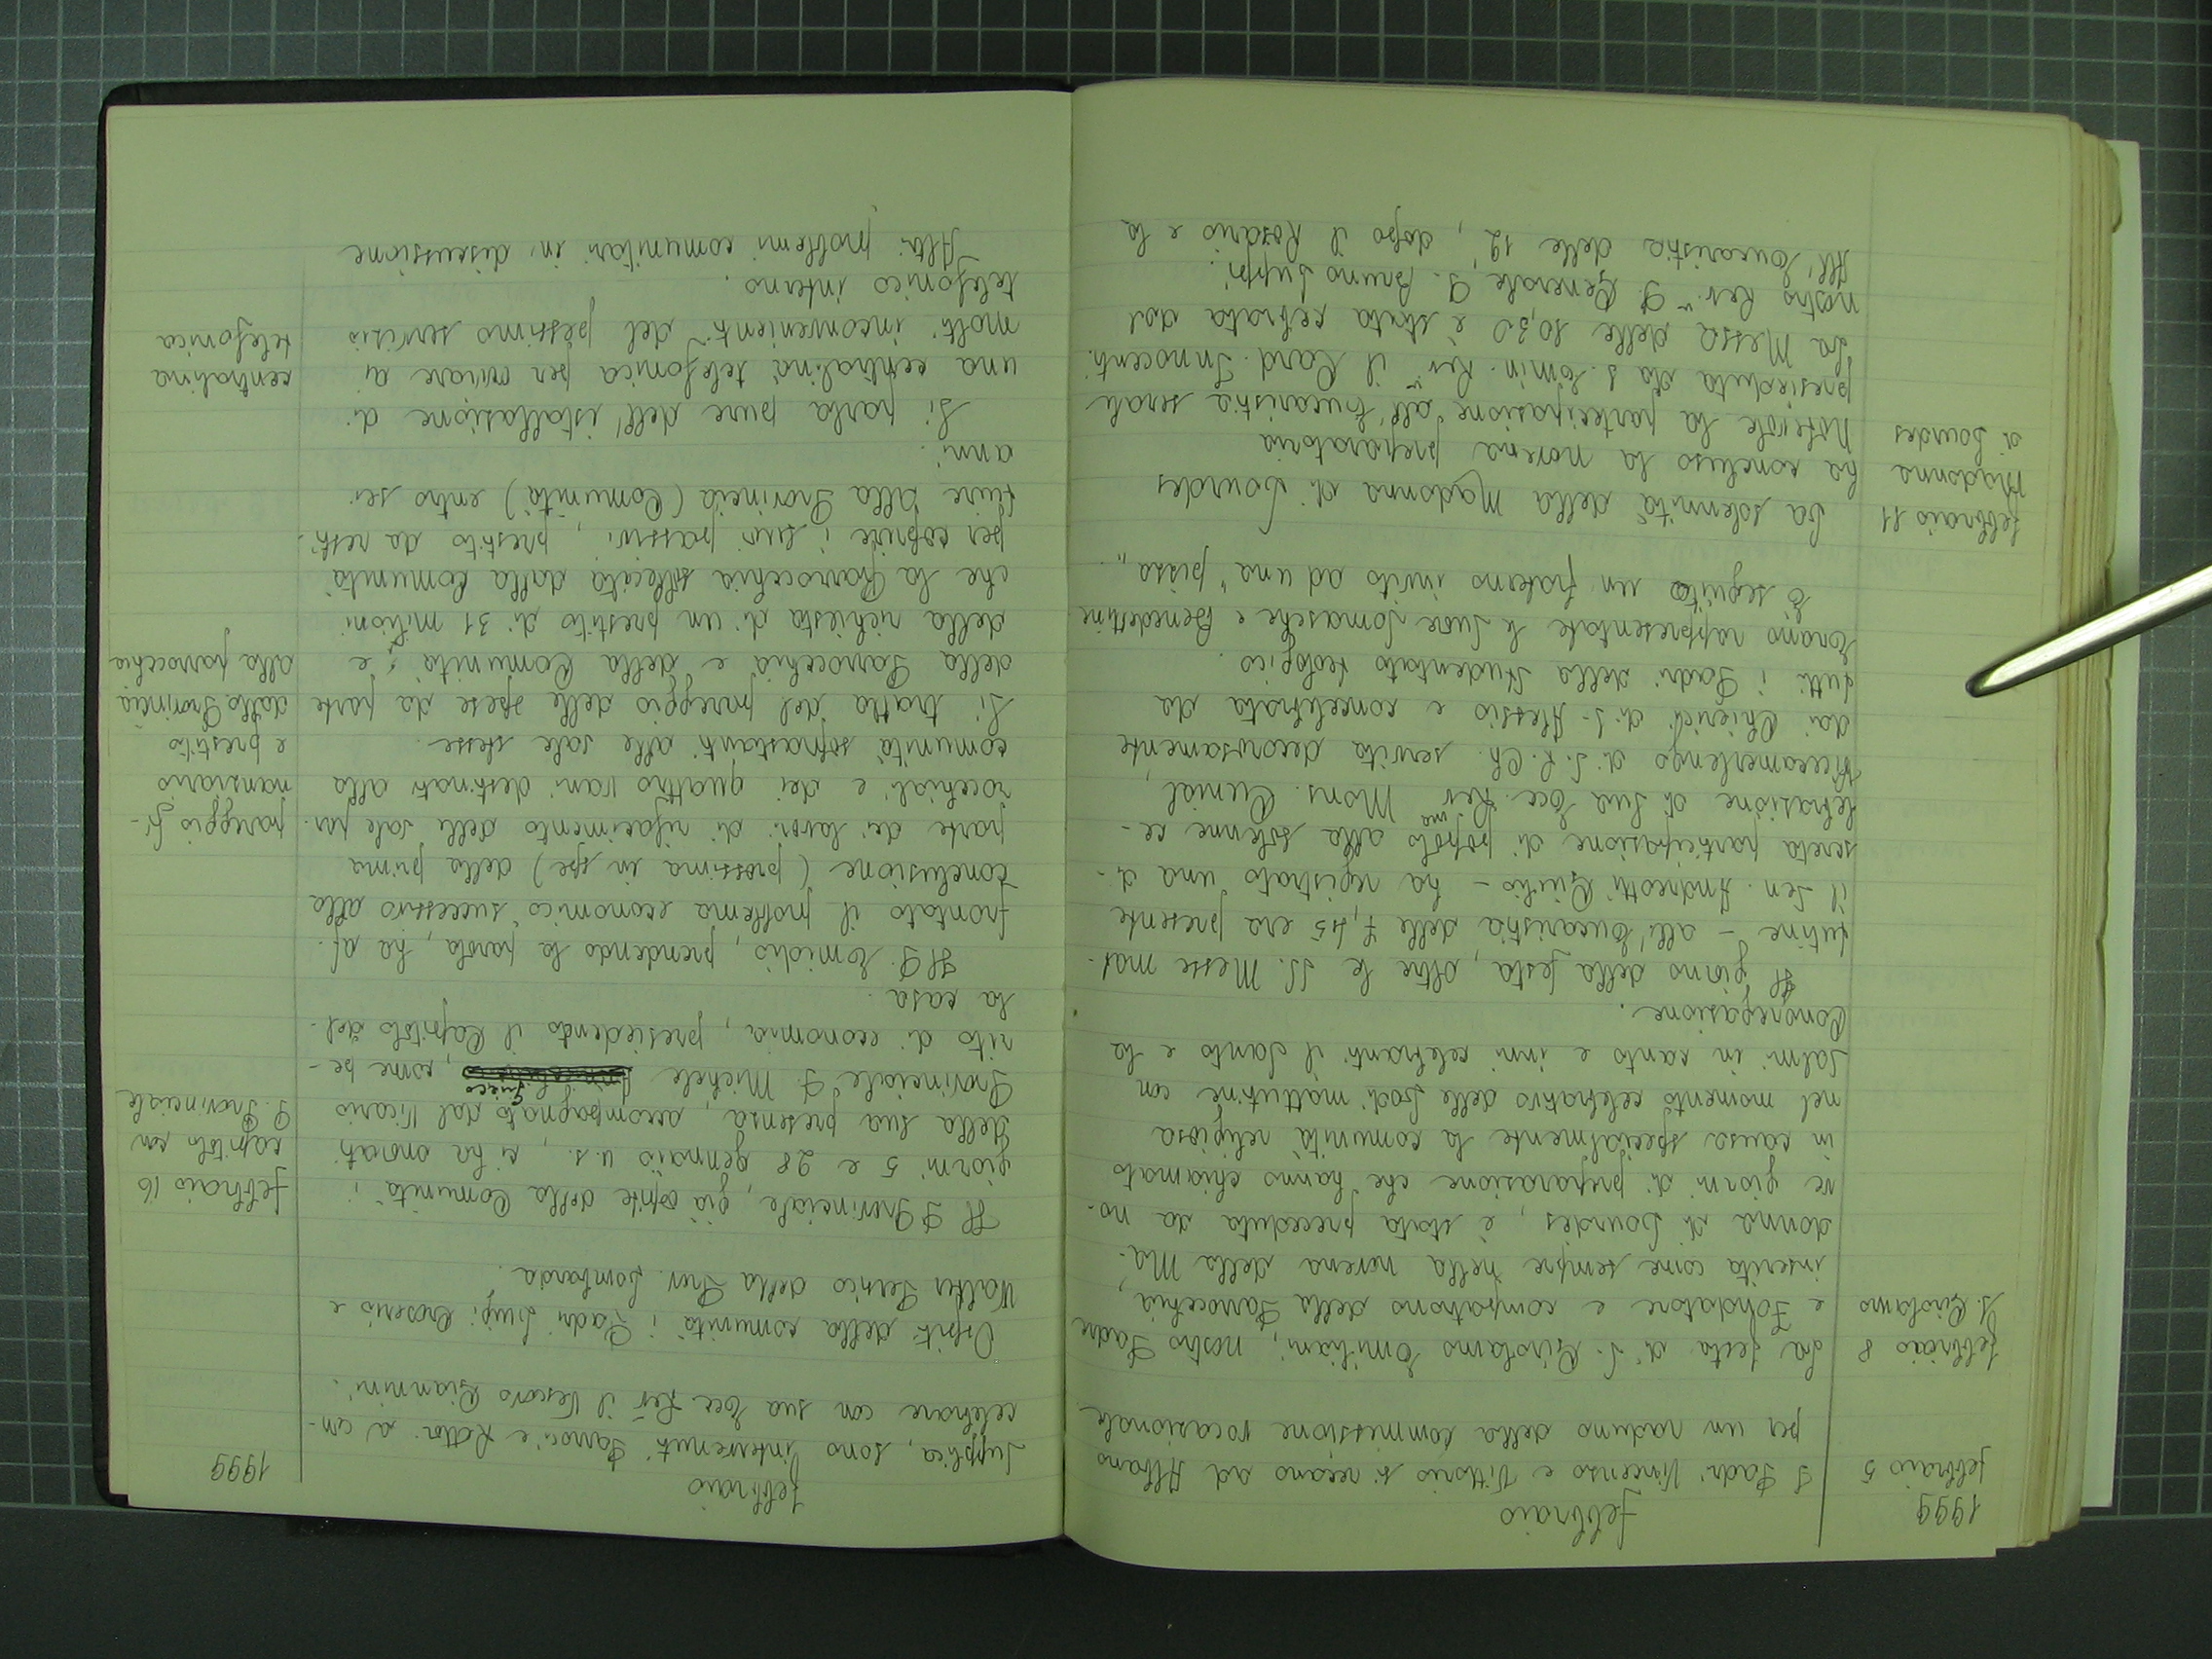 1999
febbraio
febbraio 5
I Padri Vincenzo e Vittorio si recano ad Albano
per un raduno della commissione vocazionale
febbraio 8
S. Girolamo
La festa di S. Girolamo Emiliani, nostro Padre
e Fondatore e compatrono della Parrocchia,
inserita come sempre nella novena della Ma-
donna di Lourdes, è stata preceduta da no-
ve giorni di preparazione che hanno chiamato
in causa specialmente la comunità religiosa
nel momento celebrativo delle Lodi mattutine con
salmi in canto e inni celebranti il Santo e la
Congregazione.
Il giorno della festa, oltre le SS. Messe mat-
tutine - all'Eucaristia delle 7,45 era presente
il Sen. Andreotti Giulio - ha registrato una di-
screta partecipazione di popolo alla solenne ce-
lebrazione di Sua Ecc. Rev.ma Mons. Cunial,
Vicecamerlengo di S. R. Ch. servita decorosamente
dai Chierici di S. Alessio e concelebrata da
tutti i Padri dello Studentato teologico.
Erano rappresentate le Suore Somasche e Benedettine
È seguito un fraterno invito ad una "pizza".
febbraio 11
Madonna
di Lourdes
La solennità della Madonna di Lourdes
ha concluso la novena preparatoria
Notevole la partecipazione all'Eucaristia serale
presieduta da S. Emin. Rev. il Card. Innocenti.
La Messa delle 10,30 è stata celebrata dal
nostro Rev. P. Generale P. Bruno Luppi.
All'Eucaristia delle 12, dopo il Rosario e la
febbraio
1999
Supplica, sono intervenuti Parroci e Rettori a con-
celebrare con sua Ecc Rev il Vescovo Giannini.
Ospiti della comunità i Padri Luigi Croserio e
Walter Persico della Prov. Lombarda.
febbraio 16
capitolo con
P. Provinciale
Il P Provinciale, già ospite della Comunità i
giorni 5 e 28 gennaio u.s., ci ha onorati
della sua presenza, accompagnato dal Vicario
Provinciale P Michele Grieco, come pe-
rito di economia, presiedendo il Capitolo del-
la casa.
Il P. Emidio, prendendo la parola, ha af-
frontato il problema economico successivo alla
conclusione (prossima in spe) della prima
parte dei lavori di rifacimento delle sale par-
rocchiali e dei quattro vani destinati alla
comunità soprastanti alle sale stesse.
pareggio fi-
nanziario
e prestito
dalla Provincia
alla parrocchia
Si tratta del pareggio delle spese da parte
della Parrocchia e della Comunità, e
della richiesta di un prestito di 31 milioni
che la Parrocchia sollecita dalla Comunità
per coprire i suoi passivi, prestito da resti-
tuire alla Provincia (Comunità) entro sei
anni.
centralina
telefonica
Si parla pure dell'istallazione di
una centralina telefonica per ovviare ai
molti inconvenienti del pessimo servizio
telefonico interno.
Altri problemi comunitari in discussione